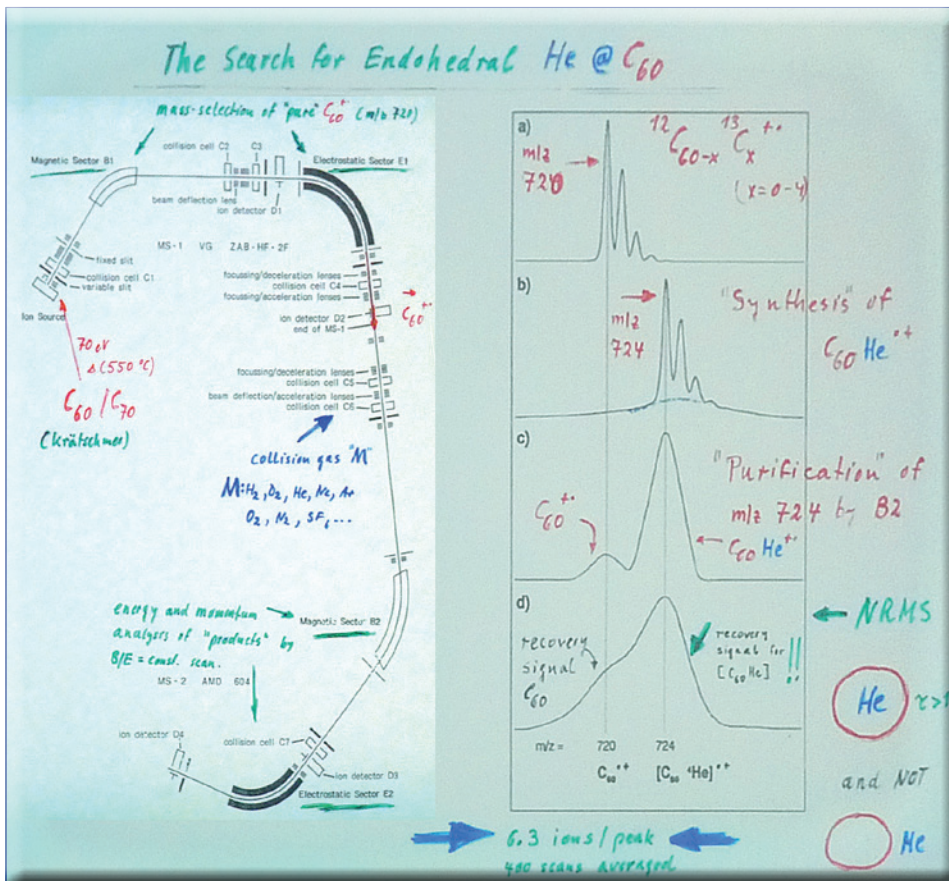 The Search for Endohedral He @ C60
mass-selection of "pure" C60+• (m/z 720)
Magnetic Sector B1
collision cell C2
C3
Electrostatic Sector E1
beam deflection lens
ion detector D1
MS-1 VG ZAB-HF-2F
fixed slit
collision cell C1
variable slit
Ion Source
focussing/deceleration lenses
collision cell C4
focussing/acceleration lenses
ion detector D2
end of MS-1
C60+•
70 eV
Δ (550 °C)
C60/C70
(Krätschmer)
focussing/deceleration lenses
collision cell C5
beam deflection/acceleration lenses
collision cell C6
collision gas "M"
M: H2, D2, He, Ne, Ar
O2, N2, SF6 ...
energy and momentum
analysis of "products" by
B/E = const. scan.
Magnetic Sector B2
MS-2 AMD 604
ion detector D4
collision cell C7
ion detector D3
Electrostatic Sector E2
a)
m/z
720
12C60-x 13Cx+•
(x=0-4)
b)
m/z
724
"Synthesis" of
C60He•+
c)
C60+•
"Purification" of
m/z 724 by B2
C60He+•
d)
recovery
signal
C60
recovery
signal for
[C60He] !!
NRMS
m/z = 720 724
C60•+ [C60 4He]•+
He
τ>
and NOT
He
6.3 ions/peak
400 scans averaged